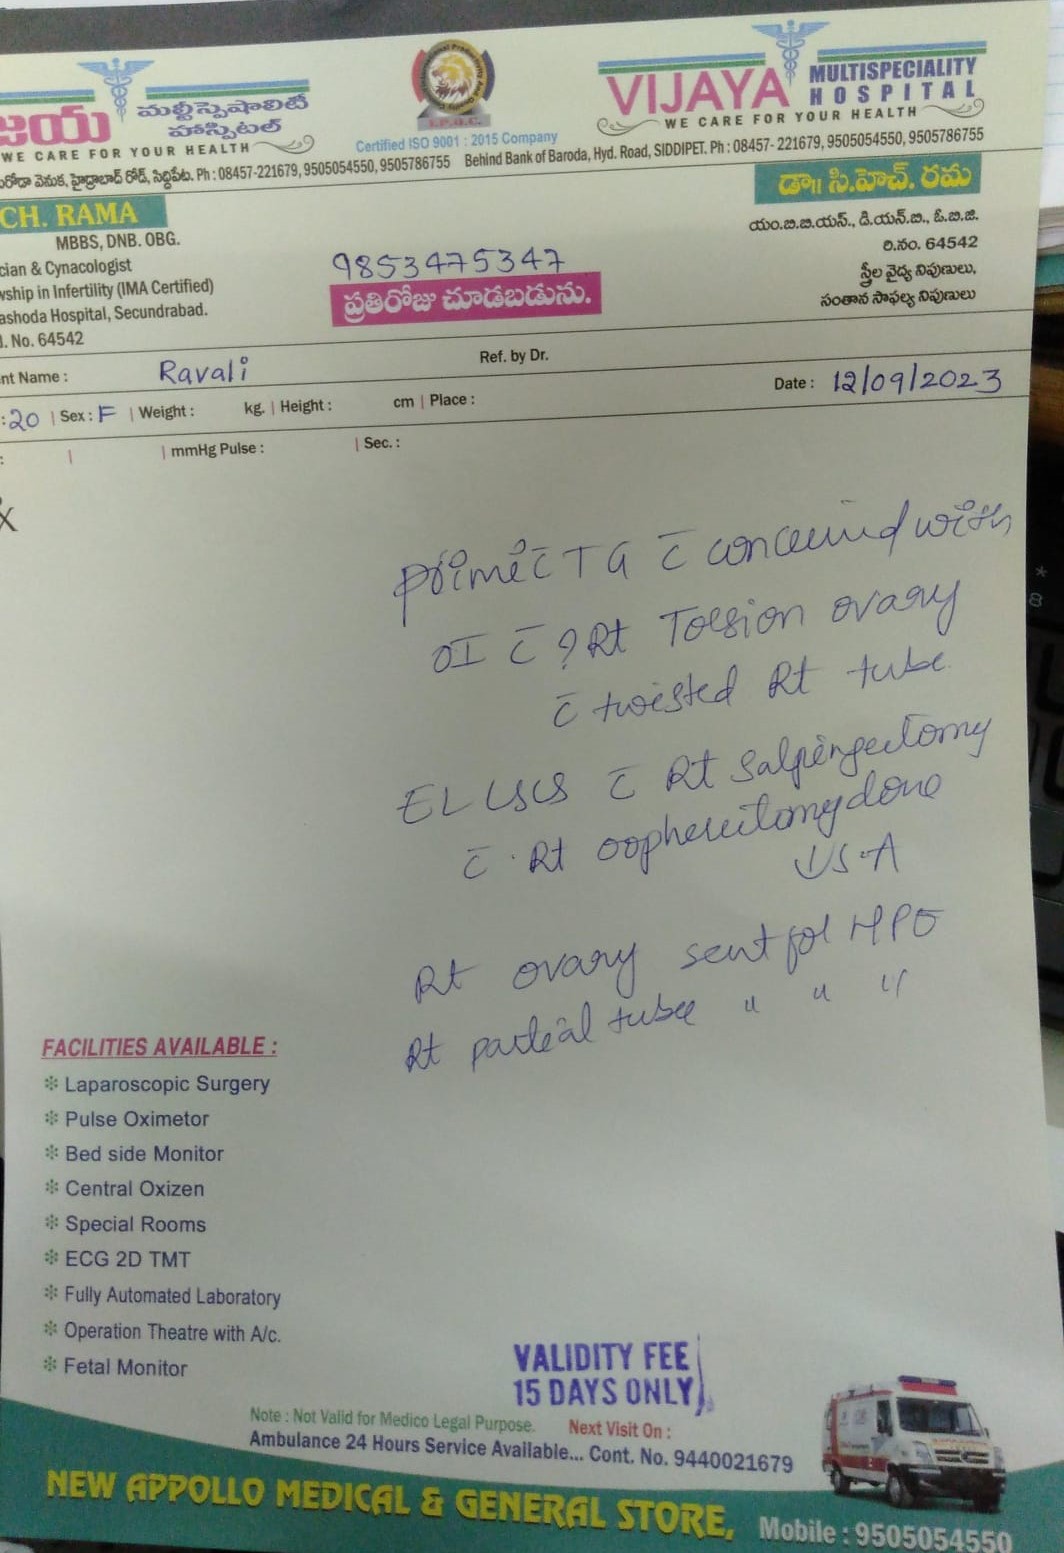 జయ మల్టీస్పెషాలిటీ హాస్పిటల్
WE CARE FOR YOUR HEALTH
I.P.Q.C.
Certified ISO 9001 : 2015 Company
VIJAYA MULTISPECIALITY HOSPITAL
WE CARE FOR YOUR HEALTH
బరోడా వెనుక, హైద్రాబాద్ రోడ్, సిద్దిపేట. Ph : 08457-221679, 9505054550, 9505786755 Behind Bank of Baroda, Hyd. Road, SIDDIPET. Ph : 08457- 221679, 9505054550, 9505786755
CH. RAMA
MBBS, DNB. OBG.
cian & Cynacologist
wship in Infertility (IMA Certified)
ashoda Hospital, Secundrabad.
. No. 64542
9853475347
ప్రతిరోజు చూడబడును.
డా॥ సి.హెచ్. రమ
యం.బి.బి.యస్., డి.యన్.బి., ఓ.బి.జి.
రి.నం. 64542
స్త్రీల వైద్య నిపుణులు,
సంతాన సాఫల్య నిపుణులు
nt Name : Ravali Ref. by Dr.
: 20 | Sex : F | Weight : kg. | Height : cm | Place : Date : 12/09/2023
: | | mmHg Pulse : | Sec. :
primi c̄ TG c̄ conceived with
OI c̄ ? Rt Torsion ovary
c̄ twisted Rt tube
EL LSCS c̄ Rt Salpingectomy
c̄ Rt oopherectomy done
↓ S.A
Rt ovary sent for HPE
Rt partial tube " " "
FACILITIES AVAILABLE :
❇ Laparoscopic Surgery
❇ Pulse Oximetor
❇ Bed side Monitor
❇ Central Oxizen
❇ Special Rooms
❇ ECG 2D TMT
❇ Fully Automated Laboratory
❇ Operation Theatre with A/c.
❇ Fetal Monitor
VALIDITY FEE
15 DAYS ONLY
Note : Not Valid for Medico Legal Purpose. Next Visit On :
Ambulance 24 Hours Service Available... Cont. No. 9440021679
NEW APPOLLO MEDICAL & GENERAL STORE, Mobile : 9505054550